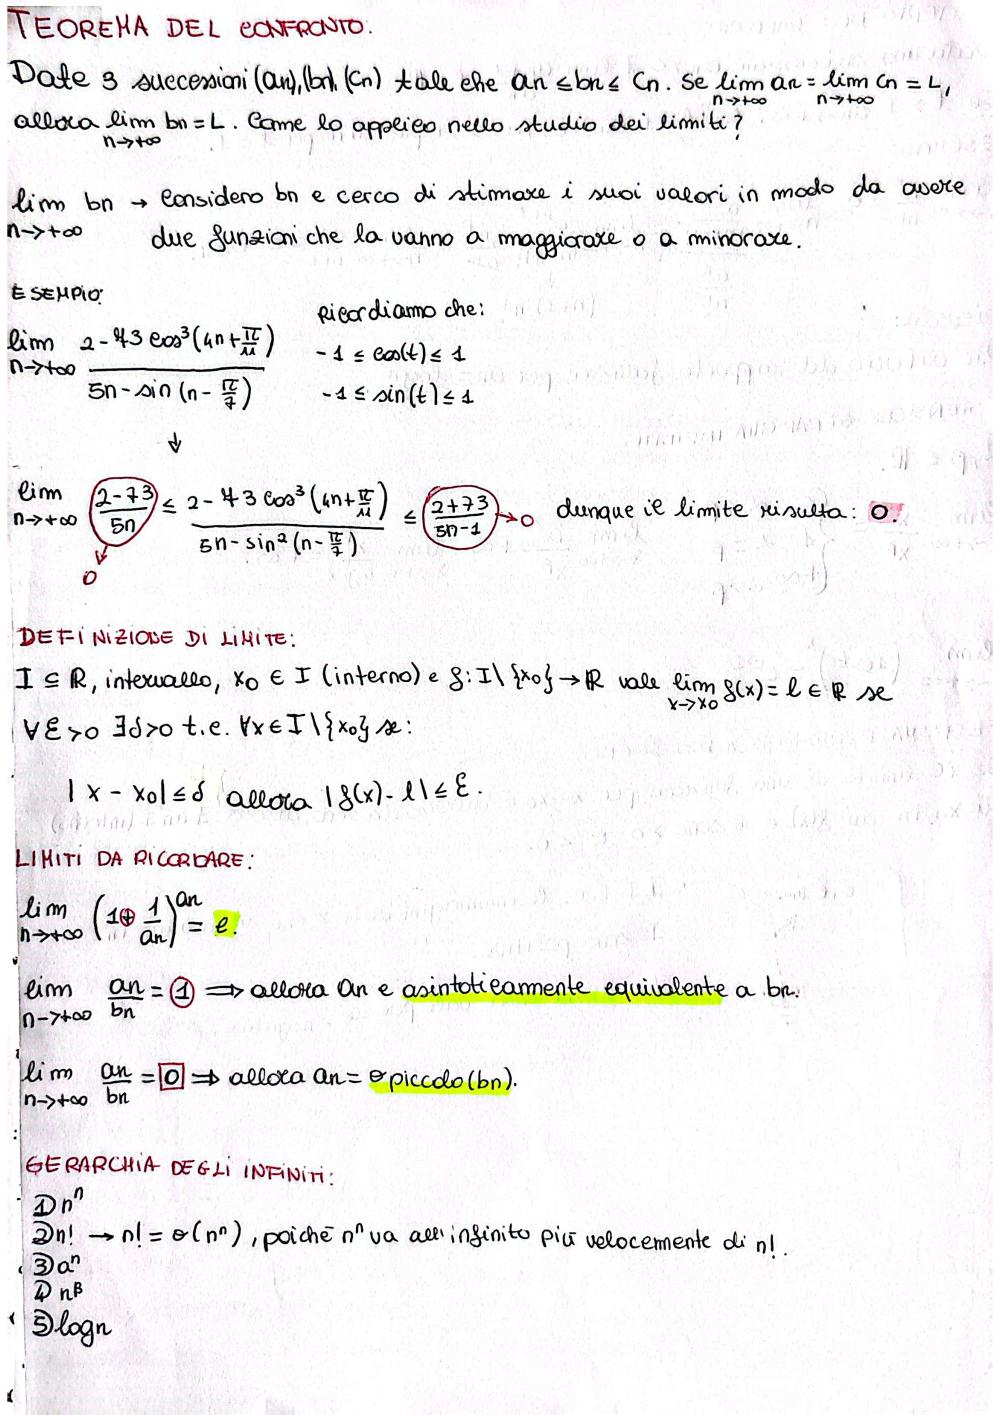 TEOREMA DEL CONFRONTO.
Date 3 successioni (an), (bn), (Cn) tale che an ≤ bn ≤ Cn. Se lim n→+∞ an = lim n→+∞ Cn = L,
allora lim n→+∞ bn = L. Come lo applico nello studio dei limiti?
lim n→+∞ bn → Considero bn e cerco di stimare i suoi valori in modo da avere
due funzioni che la vanno a maggiorare o a minorare.
ESEMPIO:
Ricordiamo che:
lim n→+∞ (2 - 73 cos³(4n + π/11)) / (5n - sin (n - π/7))
-1 ≤ cos(t) ≤ 1
-1 ≤ sin(t) ≤ 1
↓
lim n→+∞ (2-73)/5n ≤ (2 - 73 cos³(4n + π/11)) / (5n - sin²(n - π/7)) ≤ (2+73)/(5n-1) → 0 dunque il limite risulta: 0.
0
DEFINIZIONE DI LIMITE:
I ⊆ ℝ, intervallo, x0 ∈ I (interno) e f: I\{x0} → ℝ vale lim x→x0 f(x) = l ∈ ℝ se
∀ε>0 ∃δ>0 t.c. ∀x∈I\{x0} se:
|x - x0| ≤ δ allora |f(x) - l| ≤ ε.
LIMITI DA RICORDARE:
lim n→+∞ (1 + 1/an)^an = e.
lim n→+∞ an/bn = 1 ⟹ allora an e asintoticamente equivalente a bn.
lim n→+∞ an/bn = 0 ⟹ allora an = o piccolo (bn).
GERARCHIA DEGLI INFINITI:
1) n^n
2) n! → n! = o(n^n), poichè n^n va all'infinito più velocemente di n!.
3) a^n
4) n^β
5) log n